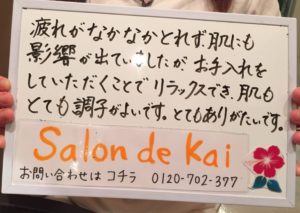 疲れがなかなかとれず、肌にも
影響が出ていましたが、お手入れを
していただくことでリラックスでき、肌も
とても調子がよいです。とてもありがたいです。
Salon de Kai
お問い合わせは コチラ 0120-702-377